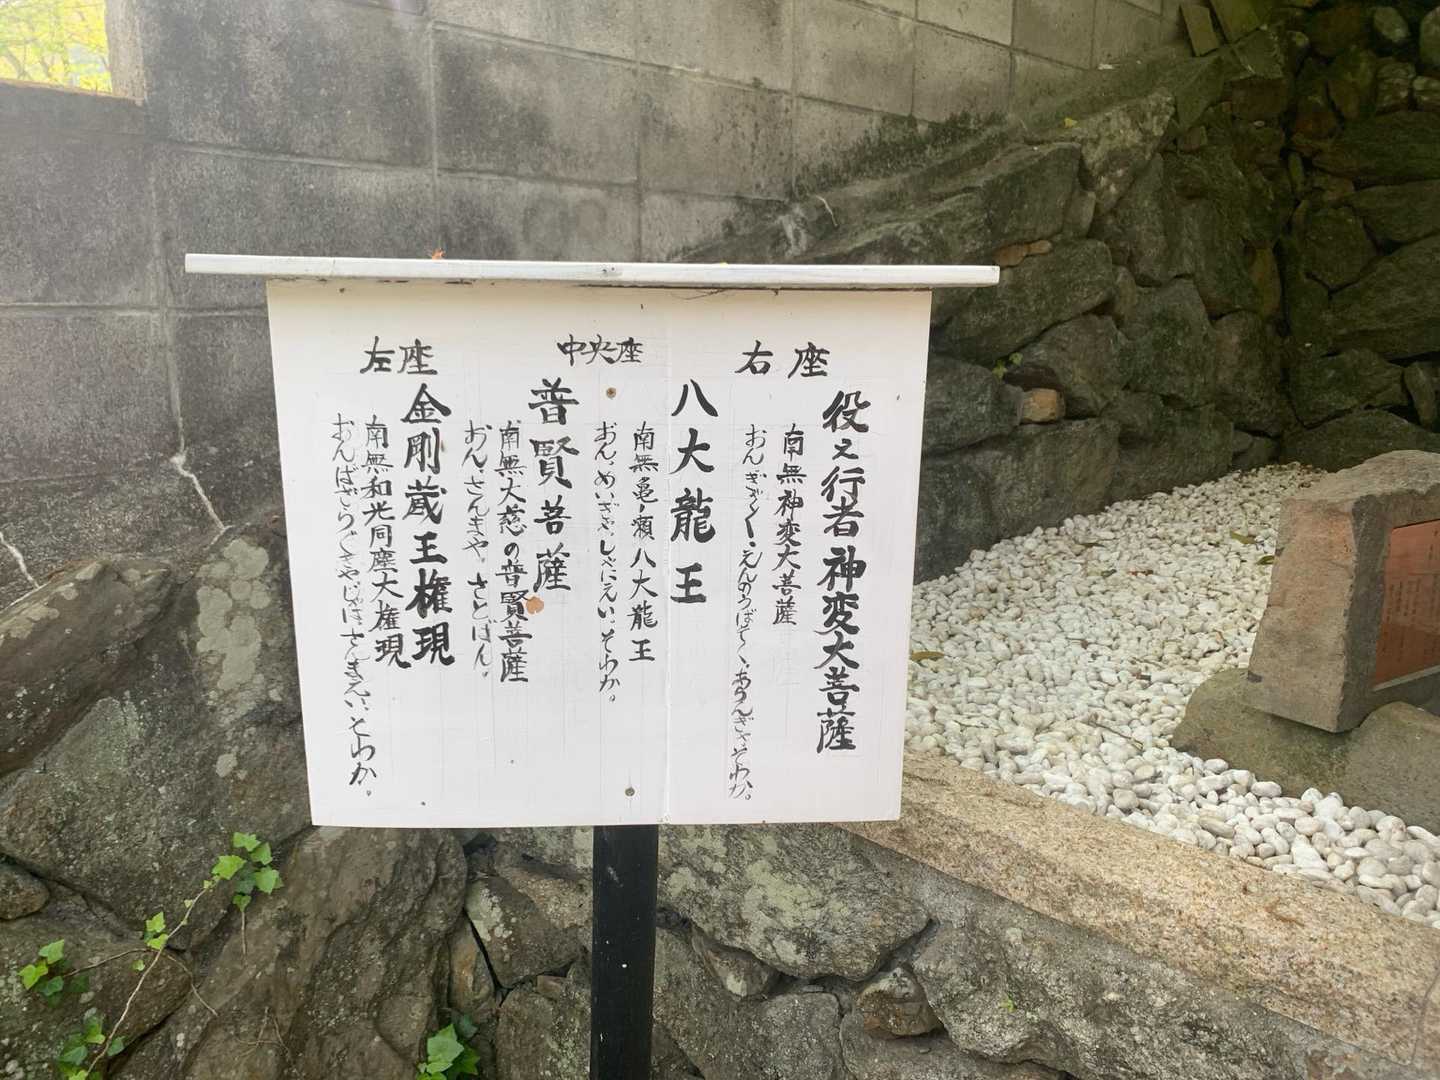 右座
役ヱ行者神変大菩薩
南無神変大菩薩
おんぎゃくぎゃく、えんのうばそく、あらんきゃそわか。
中央座
八大龍王
南無亀ノ瀬八大龍王
おん、めいぎゃ、しゃにえい、そわか。
普賢菩薩
南無大慈の普賢菩薩
おん、さんまや、さとばん。
左座
金剛蔵王権現
南無和光同塵大権現
おんばざらくしゃじゃほ、さんまえい、そわか。